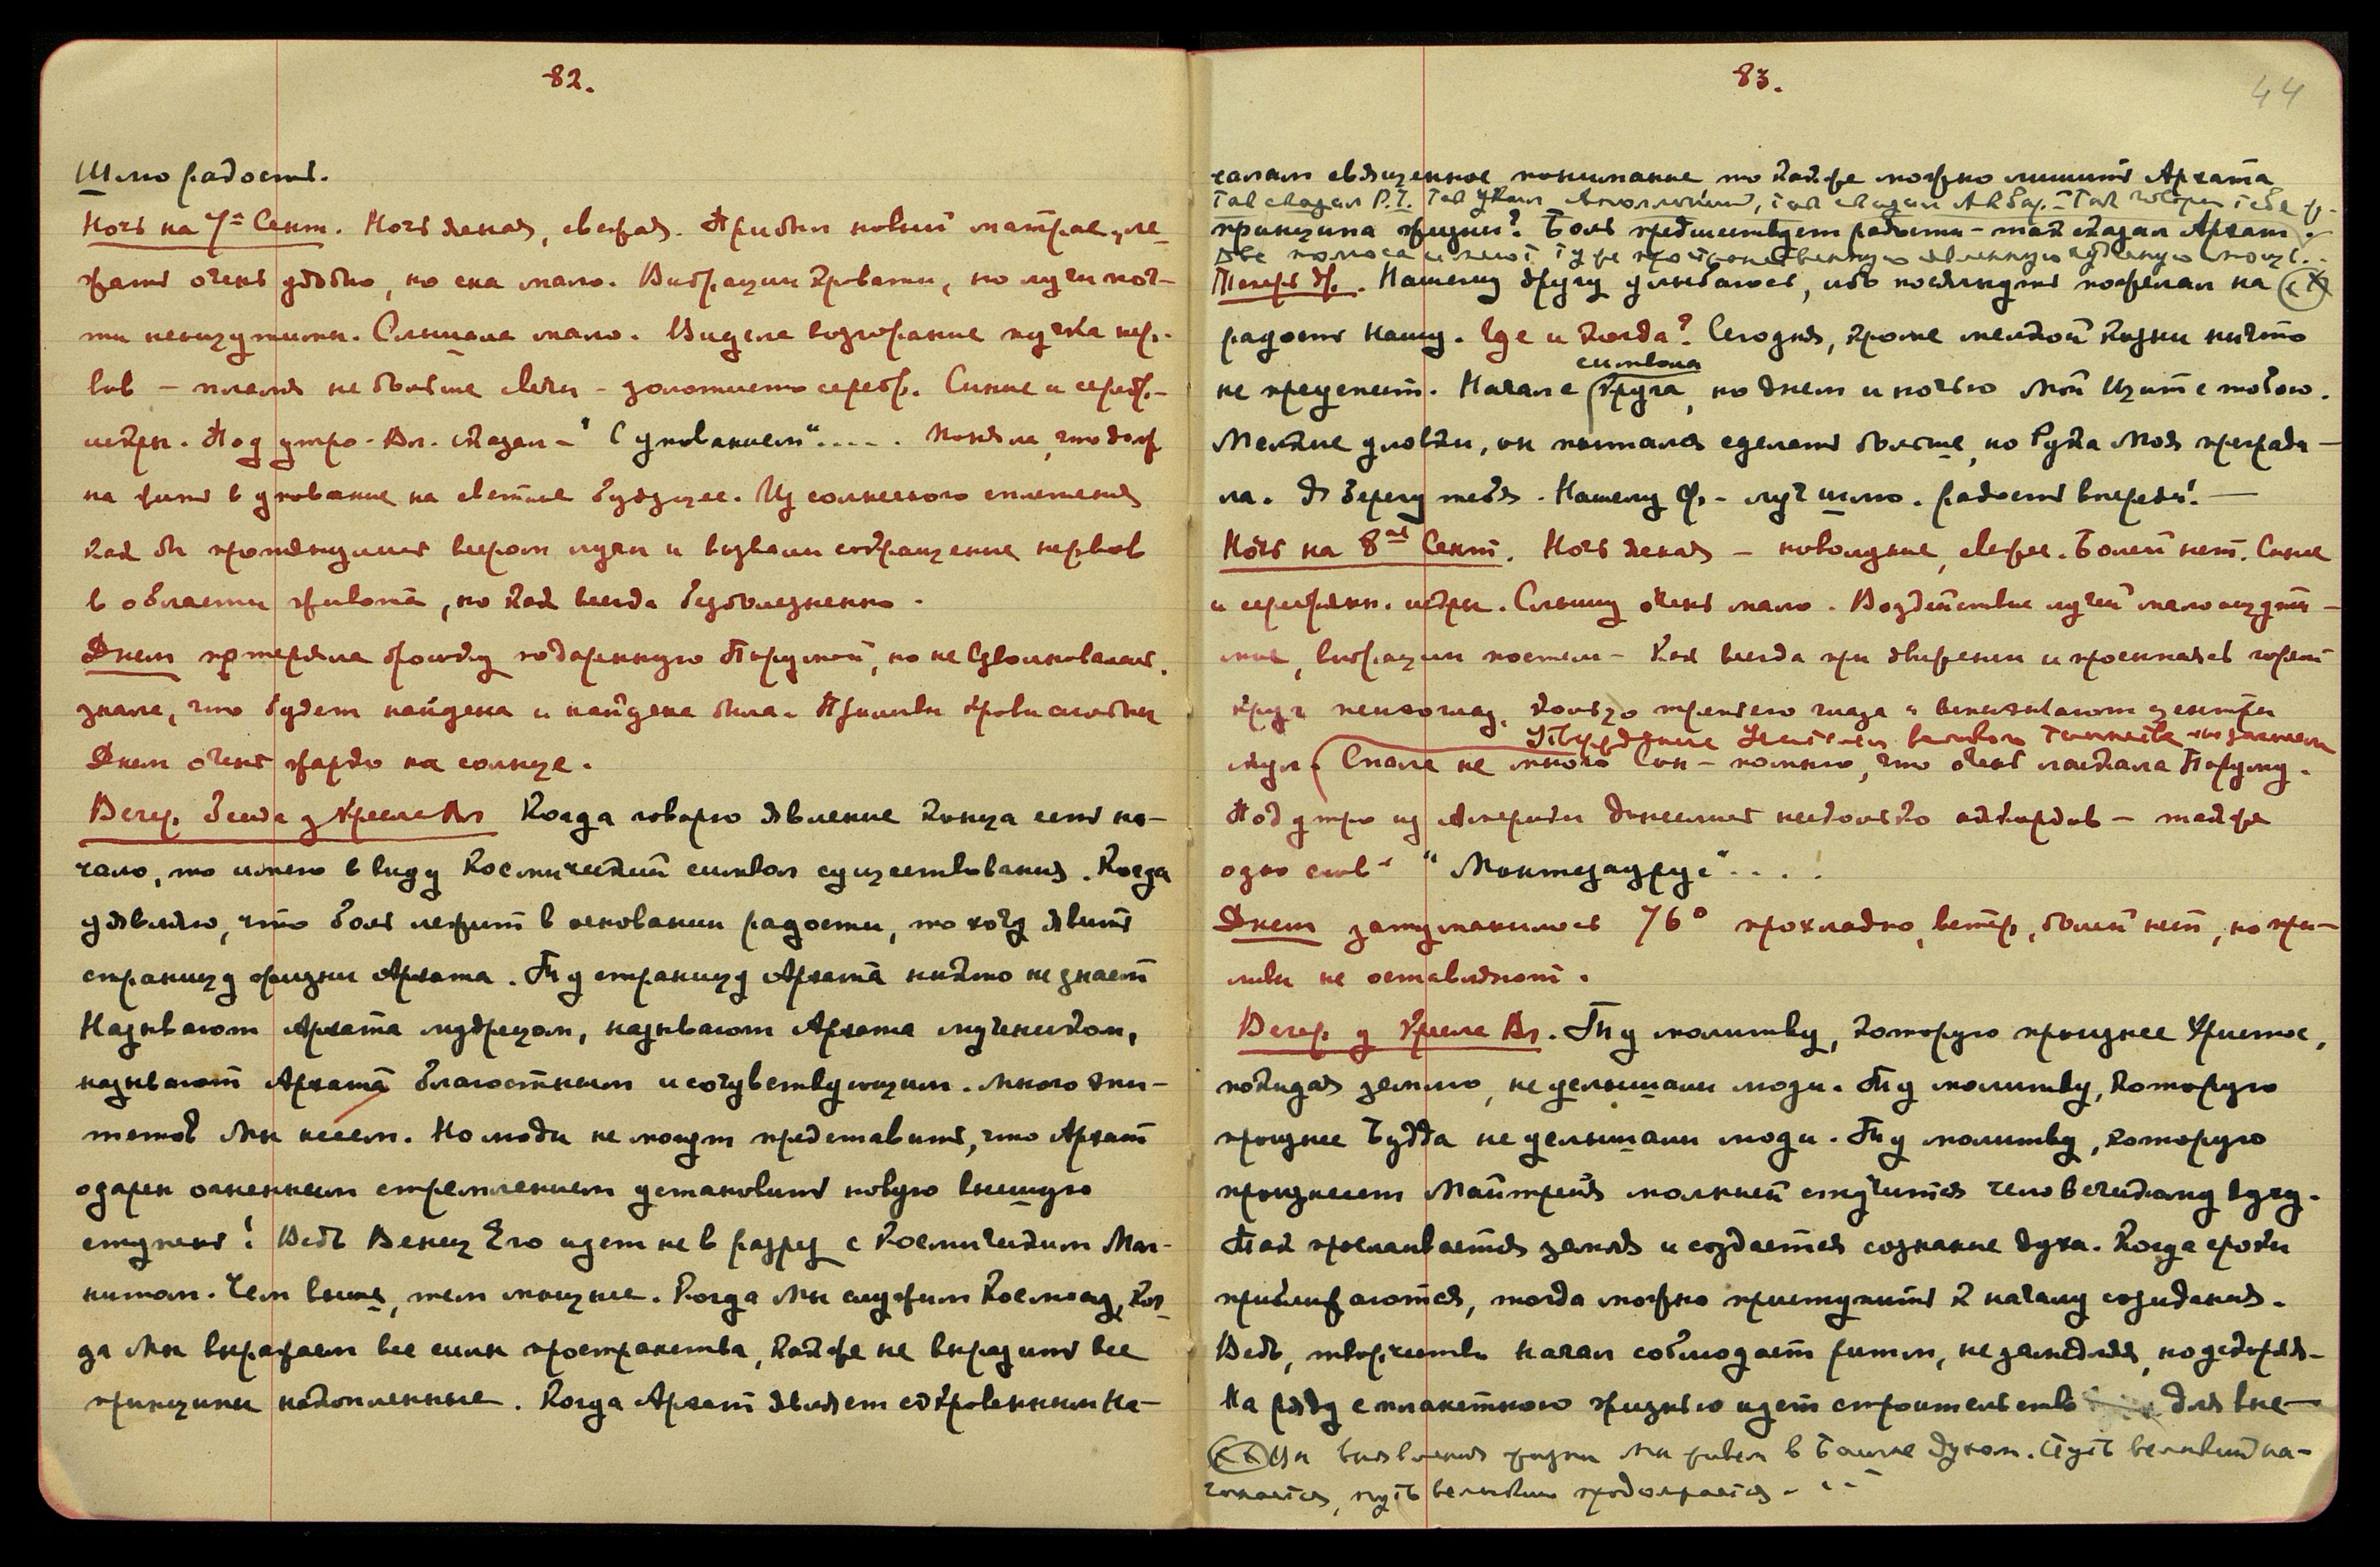 82.
Шлю радость.
Ночь на 7ое Сент. Ночь ясная, свежая. Прибыл новый матрас, ле-
жать очень удобно, но сна мало. Вибрации кровати, но лучи поч-
ти неощутимы. Слышала мало. Видела возгорание пучка нер-
вов – пламя не больше свечи – золотисто серебр. Синие и серебр.
искры. Под утро – Вл. сказал – "С упованием".... Поняла, что долж
на жить в уповании на светлое будущее. Из солнечного сплетения
как бы протянулись веером лучи и вызвали сокращение нервов
в области живота, но как всегда безболезненно.
Днем потеряла брошку подаренную Порумой, но не взволновалась,
знала, что будет найдена и найдена была. Приливы крови слабы
Днем очень жарко на солнце.
Вечер. Беседа у Кресла Вл. Когда говорю явление конца есть на-
чало, то имею в виду Космический символ существования. Когда
уявляю, что боль лежит в основании радости, то хочу явить
страницу жизни Архата. Ту страницу Архата никто не знает
Называют Архата мудрецом, называют Архата мучеником,
называют Архата благостным и сочувствующим. Много эпи-
тетов Мы несем. Но люди не могут представить, что Архат
одарен огненным стремлением установить новую высшую
ступень! Ведь Венец Его идет не в разрез с Космическим Маг-
нитом. Чем выше, тем мощнее. Когда Мы служим Космосу, Ког-
да Мы выражаем все силы пространства, как же не выразить все
принципы накопленные. Когда Архат являет сокровенным На-
83.
44
чалам священное понимание то как же можно лишить Архата
Так сказал Р.Г. Так Уявил Аполлоний, так сказал Акбар. – Так говорю тебе
принципа жизни? Боль предшествует радости – так сказал Архат.
Две полюса имеют ту же пространственную явленную чудесную мощь..
Теперь др. Нашему другу улыбаюсь, ибо посягнуть пожелал на (xx)
радость Нашу. Где и когда? Сегодня, кроме мелкой козни ничто
символа
не преуспеет. Начале круга, но днем и ночью Мой Щит с тобою.
Мелкие уловки, он пытался сделать больше, но Рука Моя прегради-
ла. Я берегу тебя. Нашему Ф. – луч шлю. радость впереди! —
Ночь на 8ое Сент. Ночь ясная – новолуние, свежее. Болей нет. Синие
и серебрян. искры. Слышу очень мало. Воздействие лучей мало ощути-
мое, вибрации постели – Как всегда при движении и просыпаясь горят
круг кольцо третьего глаза и вспыхивают центры
Утверждение
Спала не много Сон – помню, что очень ласкала Поруму.
Под утро из Америки донеслись несколько аккордов – также
одно слов– "Монтезаурус"....
Днем затуманилось 76° прохладно, ветер, болей нет, но при-
ливы не оставляют.
Вечер. у Кресла Вл. Ту молитву, которую произнес Христос,
покидая землю, не услышали люди. Ту молитву, которую
произнес Будда не услышали люди. Ту молитву, которую
произнесет Майтрейя молнией стучится человеческому духу.
Так прослаивается земля и создается сознание духа. Когда сроки
приближаются, тогда можно приступить к началу созидания.
Ведь, творчество Начал соблюдает ритм, не замедляя, но ускоряя.
На ряду с планетного жизнью идет строительство для вне-
(xx) выявления жизни Мы живем в Башне духом. Путь великий на-
чинается, путь великий продолжается...